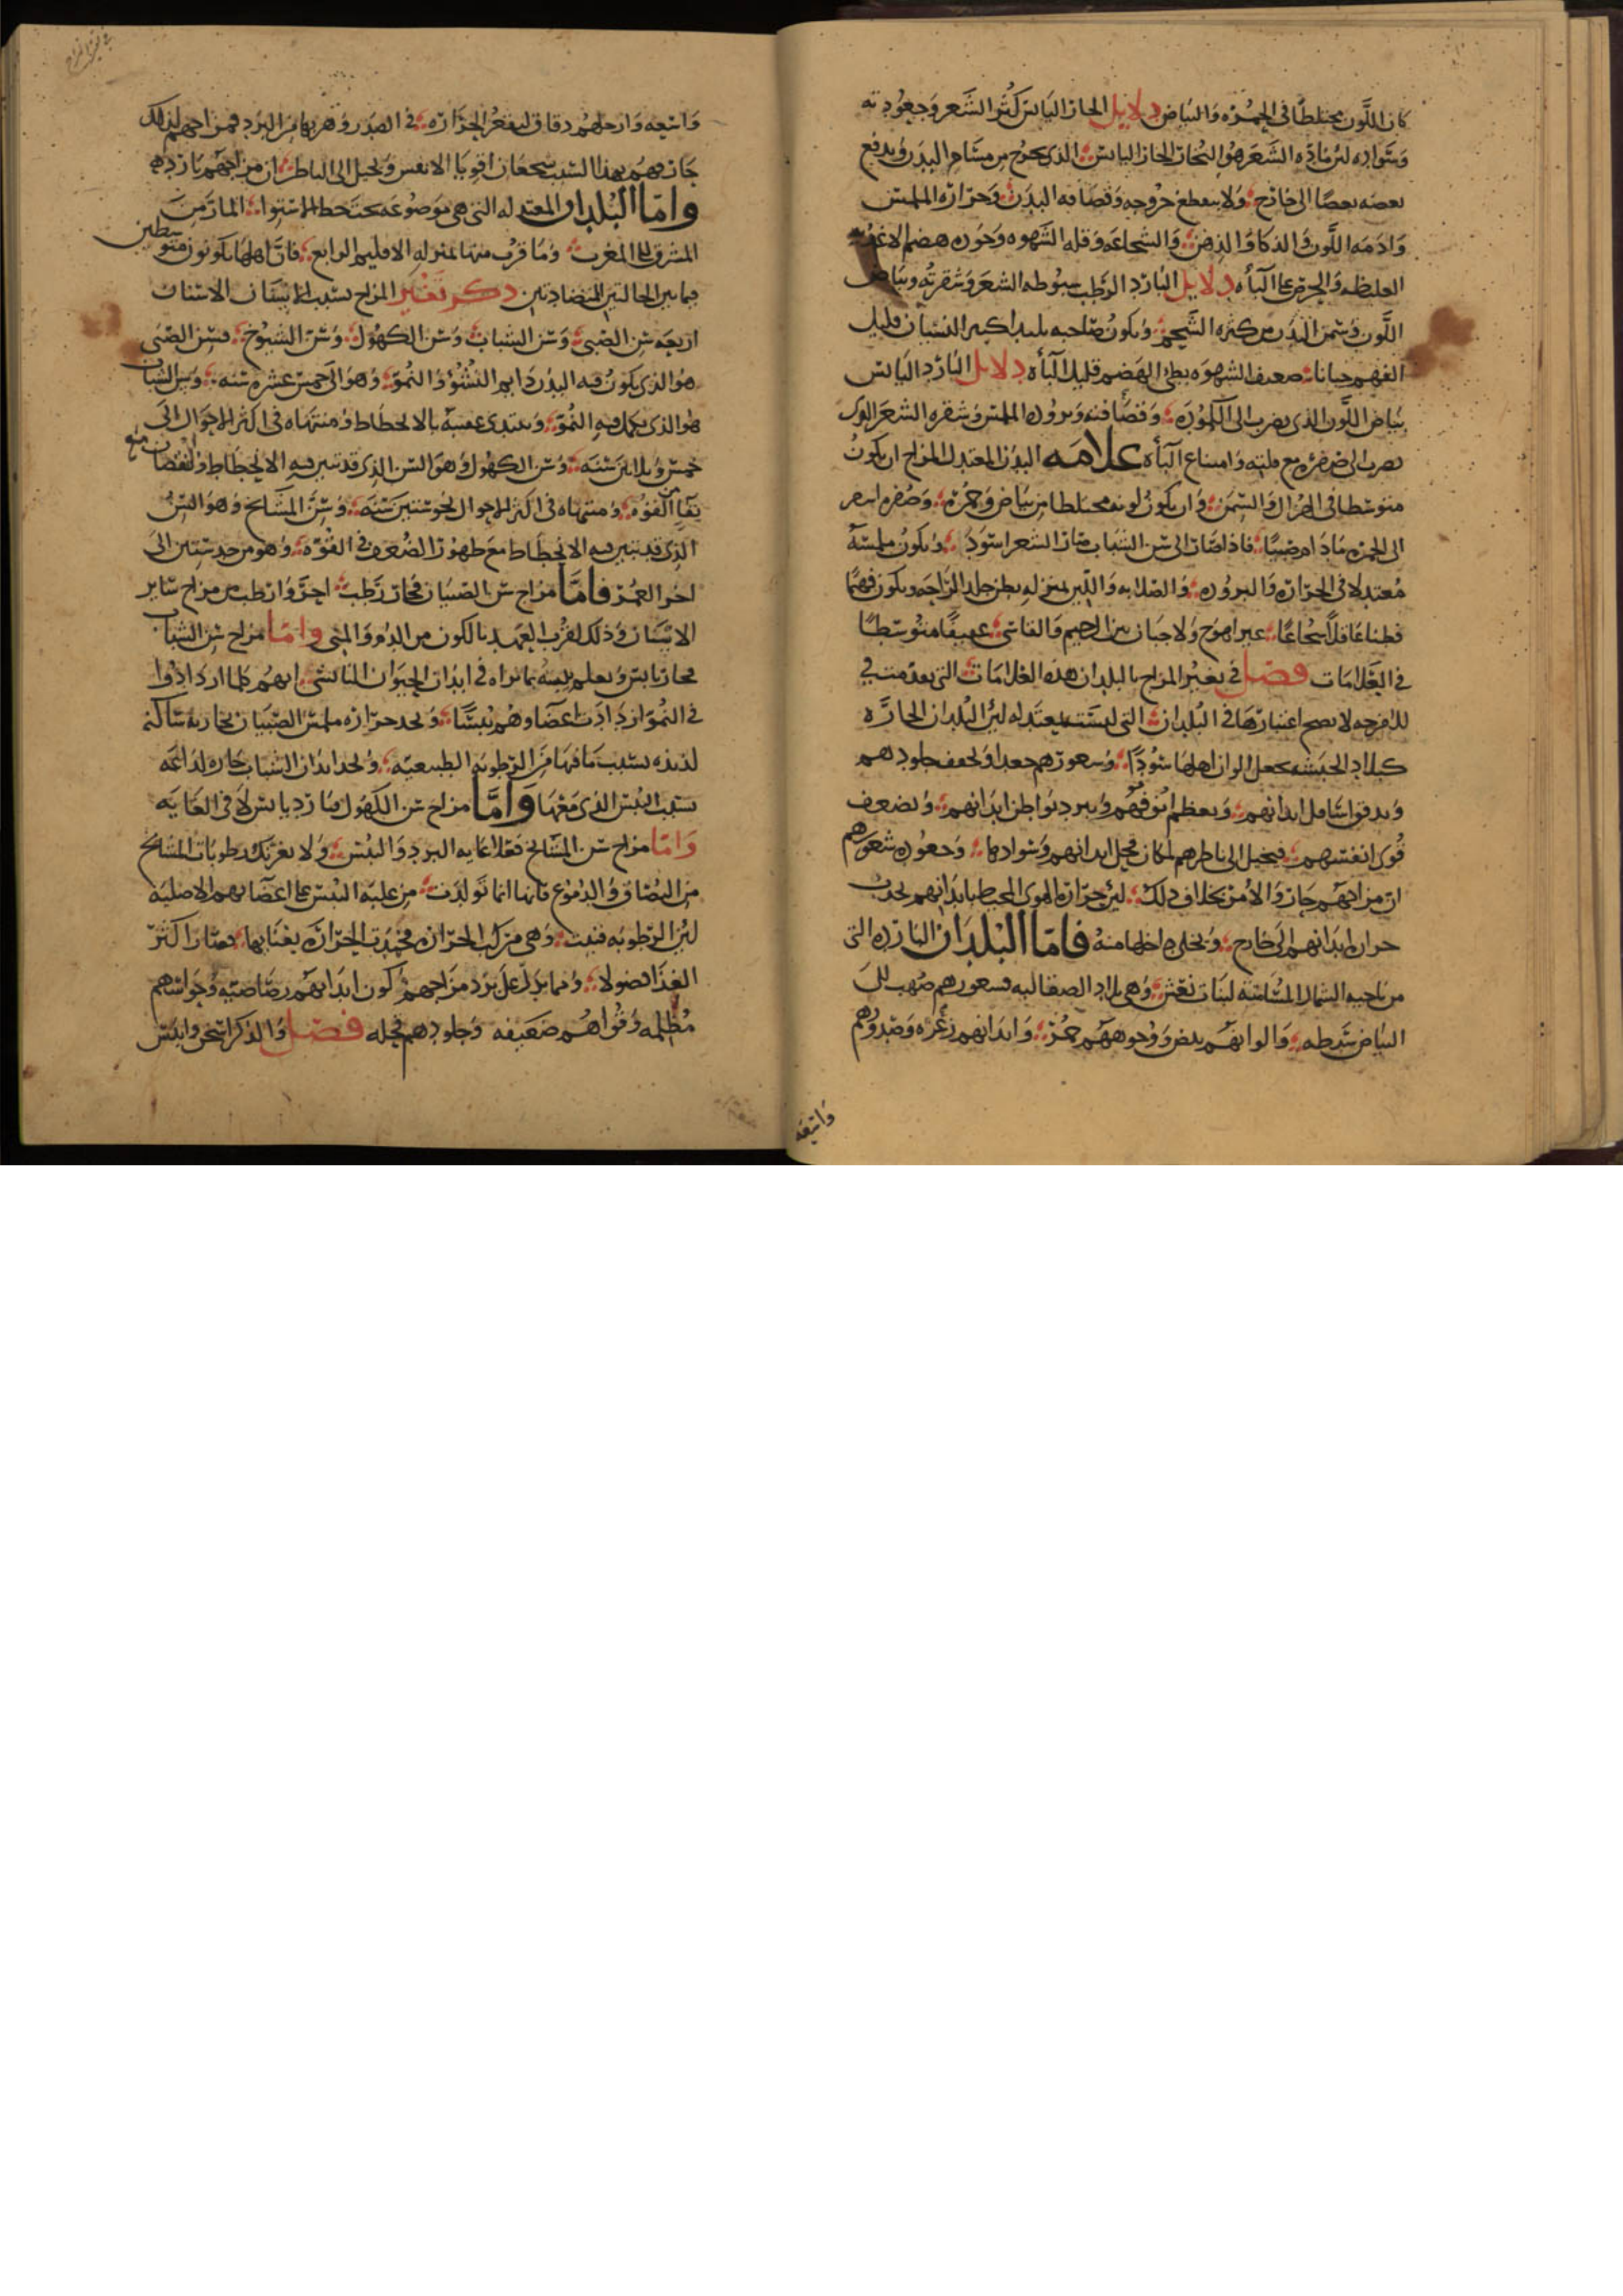 كان اللون مختلطًا فى الحمرة والبياض دلايل الحار اليابس كثرة الشعر وجعودته
وسواده لئن مادة الشعر هو البخار الحار اليابس الذى يخرج من مسام البدن ويدفع
بعضه بعضًا الى خارج ولا ينقطع خروجه وقضافه البدن وحرارة الملمس
وادمه اللون والذكا والذهن والشجاعه وقله الشهوه وجوده هضم الاغذيه
الغليظه والحرص على الباه دلايل البارد الرطب سبوطه الشعر وشقرته وبياض
اللون وسمن البدن من كثرة الشحم ويكون صاحبه بليدا كثير النسيان قليل
الفهم جبانا ضعيف الشهوه بطئ الهضم قليل الباه دلايل البارد اليابس
بياض اللون الذى يضرب الى الكموده وقضافته وبروده الملمس وشقره الشعر الذى
يضرب الى صفره مع قلته وامتناع الباه علامه البدن المعتدل المزاج ان يكون
متوسطا فى الهزال والسمن وان يكون لونه مختلطا من بياض وحمرة وشعره اشقر
الى الحمرة مادام صبيًا فاذا صار الى سن الشباب صار الشعر اسود ويكون ملمسه
معتدلا فى الحرارة والبروده والصلابه واللين بمنزله بطن جلد الراحه ويكون فهمًا
فطنا عاقلًا شجاعًا غير اهوج ولا جبان بين الرحيم والقاسى عفيفًا متوسطًا
فى العلامات فصل فى تغير المزاج بالبلدان هذه العلامات التى تقدمت فى
للامزجه لا يصح اعتبارها فى البلدان التى ليست بمعتدله لئن البلدان الحاره
كبلاد الحبشه تجعل الوان اهلها سودًا وشعورهم جعدا وتجفف جلودهم
وتدقق اسافل ابدانهم وتعظم انوفهم وتبرد بواطن ابدانهم وتضعف
قوى انفسهم فيخيل الى ناظرهم لمكان فحل ابدانهم وسوادها وجعوده شعورهم
ان مزاجهم حار والامر بخلاف ذلك لئن حرارة الهوى المحيط بابدانهم تجذب
حرارة ابدانهم الى خارج وتخلى داخلها منه فاما البلدان البارده التى
من ناحيه الشمال المسامته لبنات نعش وهى بلاد الصقالبه فشعورهم صهب الى
البياض سبطه والوانهم بيض ووجوههم حمر وابدانهم زعره وصدورهم
واسعه
واسعه وارجلهم دقاق لتقعر الحرارة فى الصدر وهربها من البرد فمزاجهم لذلك
حار فهم بهذا السبب شجعان اقويا الانفس ويخيل الى الناظر ان مزاجهم بارده
واما البلدان المعتدله التى هى موضوعه تحت خط الاستوا المار من
المشرق الى المغرب وما قرب منها بمنزله الاقليم الرابع فان اهلها يكونون متوسطين
فيما بين الحالتين المتضادتين ذكر تغير المزاج بسبب الاسنان الاسنان
اربعه سن الصبى وسن الشباب وسن الكهول وسن الشيوخ فسن الصبى
هو الذى يكون فيه البدن دايم النشؤ والنمو وهو الى خمس عشرة سنه وسن الشباب
هو الذى يكمل فيه النمو ويبتدى عقيبه بالانحطاط ومنتهاه فى اكثر الاحوال الى
خمس وثلاثين سنه وسن الكهول وهو السن الذى قد تبين فيه الانحطاط والنقصان مع
بقاء من القوه ومنتهاه فى اكثر الاحوال نحو ستين سنه وسن المشايخ وهو السن
الذى قد تبين فيه الانحطاط مع ظهور الضعف فى القوه وهو من حد ستين الى
اخر العمر فاما مزاج سن الصبيان فحار رطب احر وارطب من مزاج ساير
الاسنان وذلك لقرب العهد بالكون من الدم والمنى واما مزاج سن الشباب
فحار يابس ويعلم يبسه بما نراه فى ابدان الحيوان الناشى انهم كلما ازدادوا
فى النمو ازدادت اعضاوهم يبسًا ونجد حرارة ملمس الصبيان بخاريه ساكنه
لذيذه بسبب ما فيها من الرطوبه الطبيعيه ونجد ابدان الشباب حاره لذاعه
بسبب اليبس الذى معها واما مزاج سن الكهول فبارد يابس لا فى الغايه
واما مزاج سن المشايخ فعلى غايه البرد واليبس ولا يغرنك رطوبات المشايخ
من البصاق والدموع فانها انما تولدت من غلبه اليبس على اعضائهم الاصليه
لئن الرطوبه فنيت وهى مركب الحرارة فخمدت الحرارة بفنائها فصار اكثر
الغذا فضولا ومما يدل على برد مزاجهم كون ابدانهم رصاصيه وحواسهم
مظلمه وقواهم ضعيفه وجلودهم فحله فصل والذكر اسخن وايبس